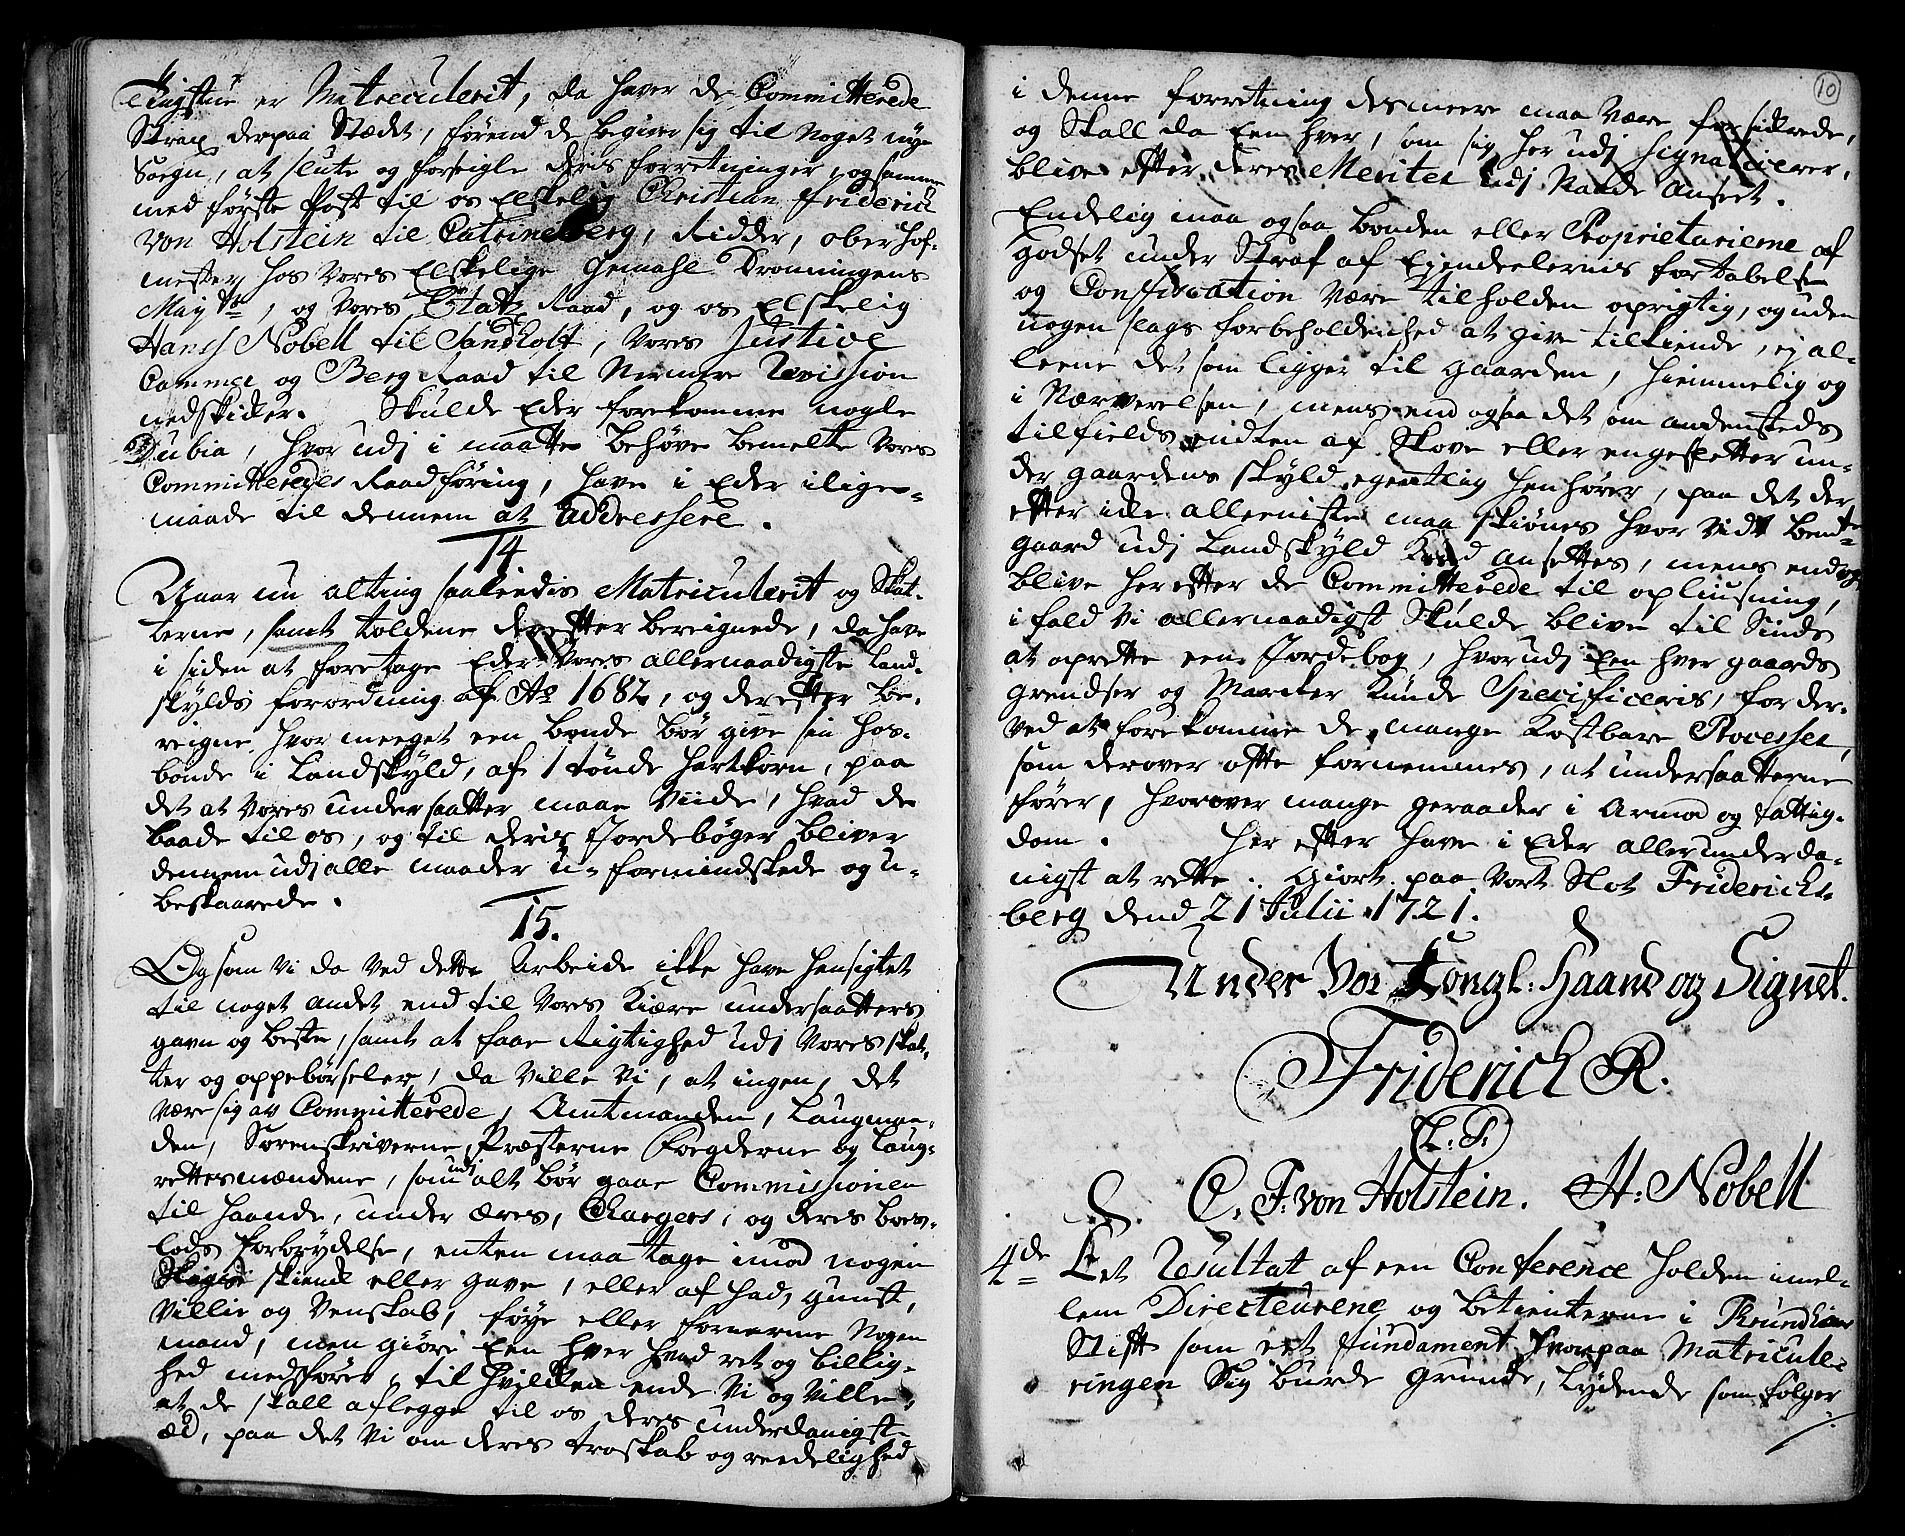 Tingstue er Matreculerit, da haver de Committerede
Strax derpaa Stædet, førend de begiver sig til noget nye
Sogn, at slute og forseigle deris forretninger, og samme
med første Post til os Elskelig Christian Friderich
von Holstein til Catrineberg, Ridder, ober hof-
mester hos Vores Elskelige Gemahl Dronningens
Mayts, og Vores Etatz Raad, og os Elskelig
Hanss Nobell til Sandholt, Vores Justice
Cammer og Berg Raad til Nermere Revission
nedskicker. Skulde Eder forekomme nogle
Dubia, hvor udj i maatte behøve bemelte Vores
Committeredes Raadføring, have i Eder ilige-
maade til dennem at addressere.
14.
Naar nu alting saaledis Matriculerit og Skat-
terne, samt tolden derefter bereignede, da have
i siden at foretage Eder Vores allernaadigste Land-
skylds forordning af Ao 1682, og derefter be-
reigne, hvor meeget een bonde bør give sin hos-
bonde i Landskyld, af 1 tønde hartkorn, paa
det at Vores undersaatter maae Viide, hvad de
baade til os, og til deris Jordebøger bliver
dennem udj alle maader u-formindskede og u-
beskaarede.
15.
Og som Vi da Ved dette Arbeide ikke have hensigtet
til noget andet end til Vores Kiære undersaatters
gavn og beste, samt at faae Rigtighed udj Vores skat-
ter og oppebørseler, da Ville Vi, at ingen, det
være sig av Committerede, Amtmanden, Laugman-
den, Sorenskriverne, Præsterne Foegderne og Laug-
rettesmændene, som udj alt bør gaae Commissionen
til haande, under æres, Charges, og deres boes-
lods forbrydelse, enten maa tage imod nogen
skienk eller gave, eller af had, gunst,
Villie og Venskab, føye eller fornerme Nogen
mand, men giøre Een hver hvad ret og billig-
hed medfører, til hvilken ende Vi og Ville,
at de skall aflegge til os deres underdanigste
æd, paa det Vi om deres troskab og reedelighed
10
i denne forretning desmeere maa Være forsickrede,
og Skall da Een hver, som sig her udj signalicerer,
blive efter deres Meriter udj Naade anseet.
Endelig maa ogsaa bonden eller Proprietarierne af
godset under Straf af Ejendeelernis fortabelse
og Confiscation Være tilholden oprigtig, og uden
nogen slags forbeholdenhed at give tilkiende, ej al-
leene det som ligger til gaarden, hiemmelig og
i Nærverelsen, mens end ogsaa det som andensteds
tilfields enten af Skove eller engesletter un-
der gaardens skyld egentlig henhører, paa det der
efter icke alleeniste maa skiønes hvor vidt bemte
gaard udj Landskyld Kand ansettes, mens end og
blive her efter de Committerede til opliusning,
ifald Vi allernaadigst Skulde blive til Sinds
at oprette een Jordebog, hvor udj Een hver gaards
grendser og Marcker kunde Specificeris, for der-
ved at forekomme de mange Kostbare Processer,
som derover ofte fornemmes, at undersaatterne
fører, hvorover mange geraader i Armod og fattig-
dom. Her efter have i Eder allerunderda-
nigst at rette. Giort paa Vort Slot Friderichs-
berg dend 21 Julii 1721.
Under Vor Kongl: Haand og Signet.
Friderich R.
(L:S.)
C. F: von Holstein. H: Nobell
4de Eet Resultatt af een Conference holden imel-
lem Directeurene og betienterne i Trundhiems
Stift som eet fundament hvorpaa Matricule-
ringen Sig burde grunde, Lydende som følger